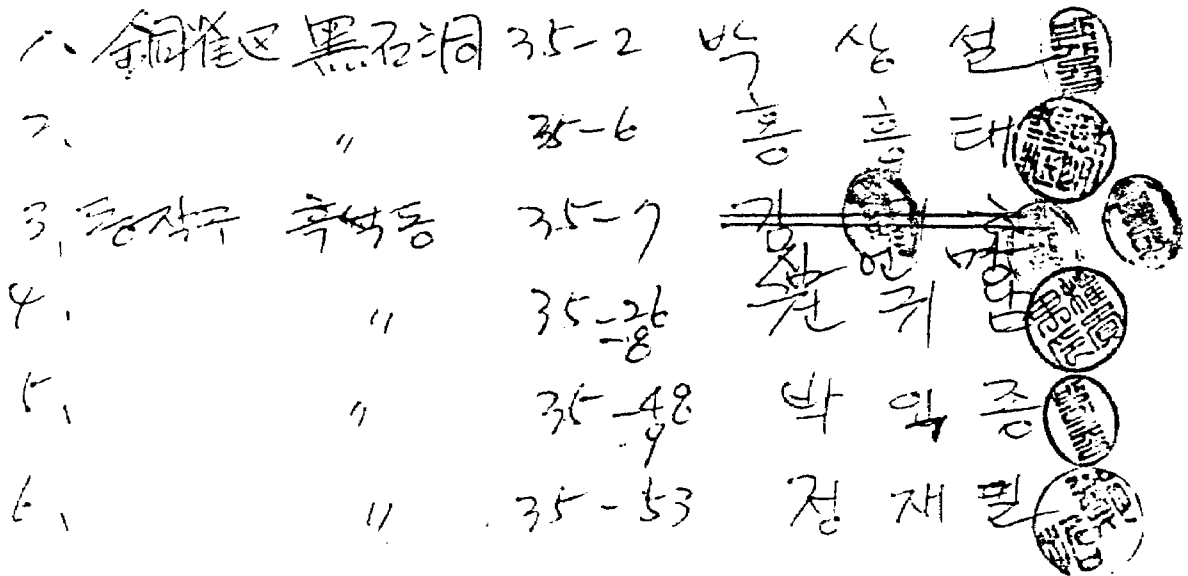 1. 銅雀区 黑石洞 35-2 박 상 설
2. 〃 35-6 홍 흥 태
3. 동작구 흑석동 35-7 김
심 언
4. 〃 35-26 권 귀 암
-8
5. 〃 35-48 박 익 종
9
6. 〃 35-53 정 재 필